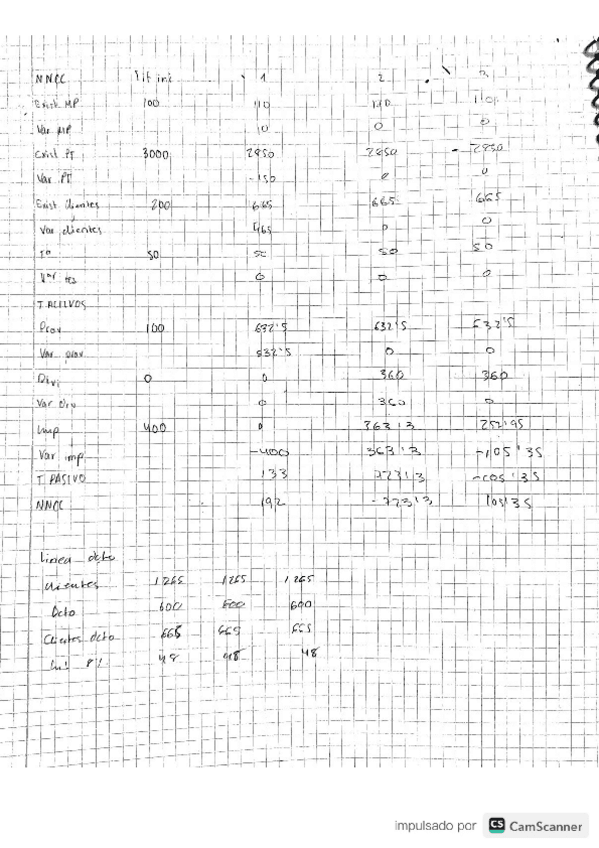 NNCC 1 2
Exist. MP 100 110 110 110
Var MP 10 0 0
Exist PT 3000 2850 2850 2850
Var PT -150 0 0
Exist clientes 200 665 665 665
Var clientes 465 0 0
50 50 50
Var tes 0 0 0
T ACTIVOS
Prov 100 632'5 632'5 632'5
Var prov 532'5 0 0
Div 0 0 360 360
Var div 0 360 0
Imp 400 0 363'3
Var imp -400 363'3 -105'35
T PASIVO 133 -105'35
NNCC 192 105'35
Linea dcto
Clientes 1265 1265 1265
Dcto 600 600 600
Clientes dcto 665 665 665
Int 8% 48 48 48
Impulsado por CS CamScanner